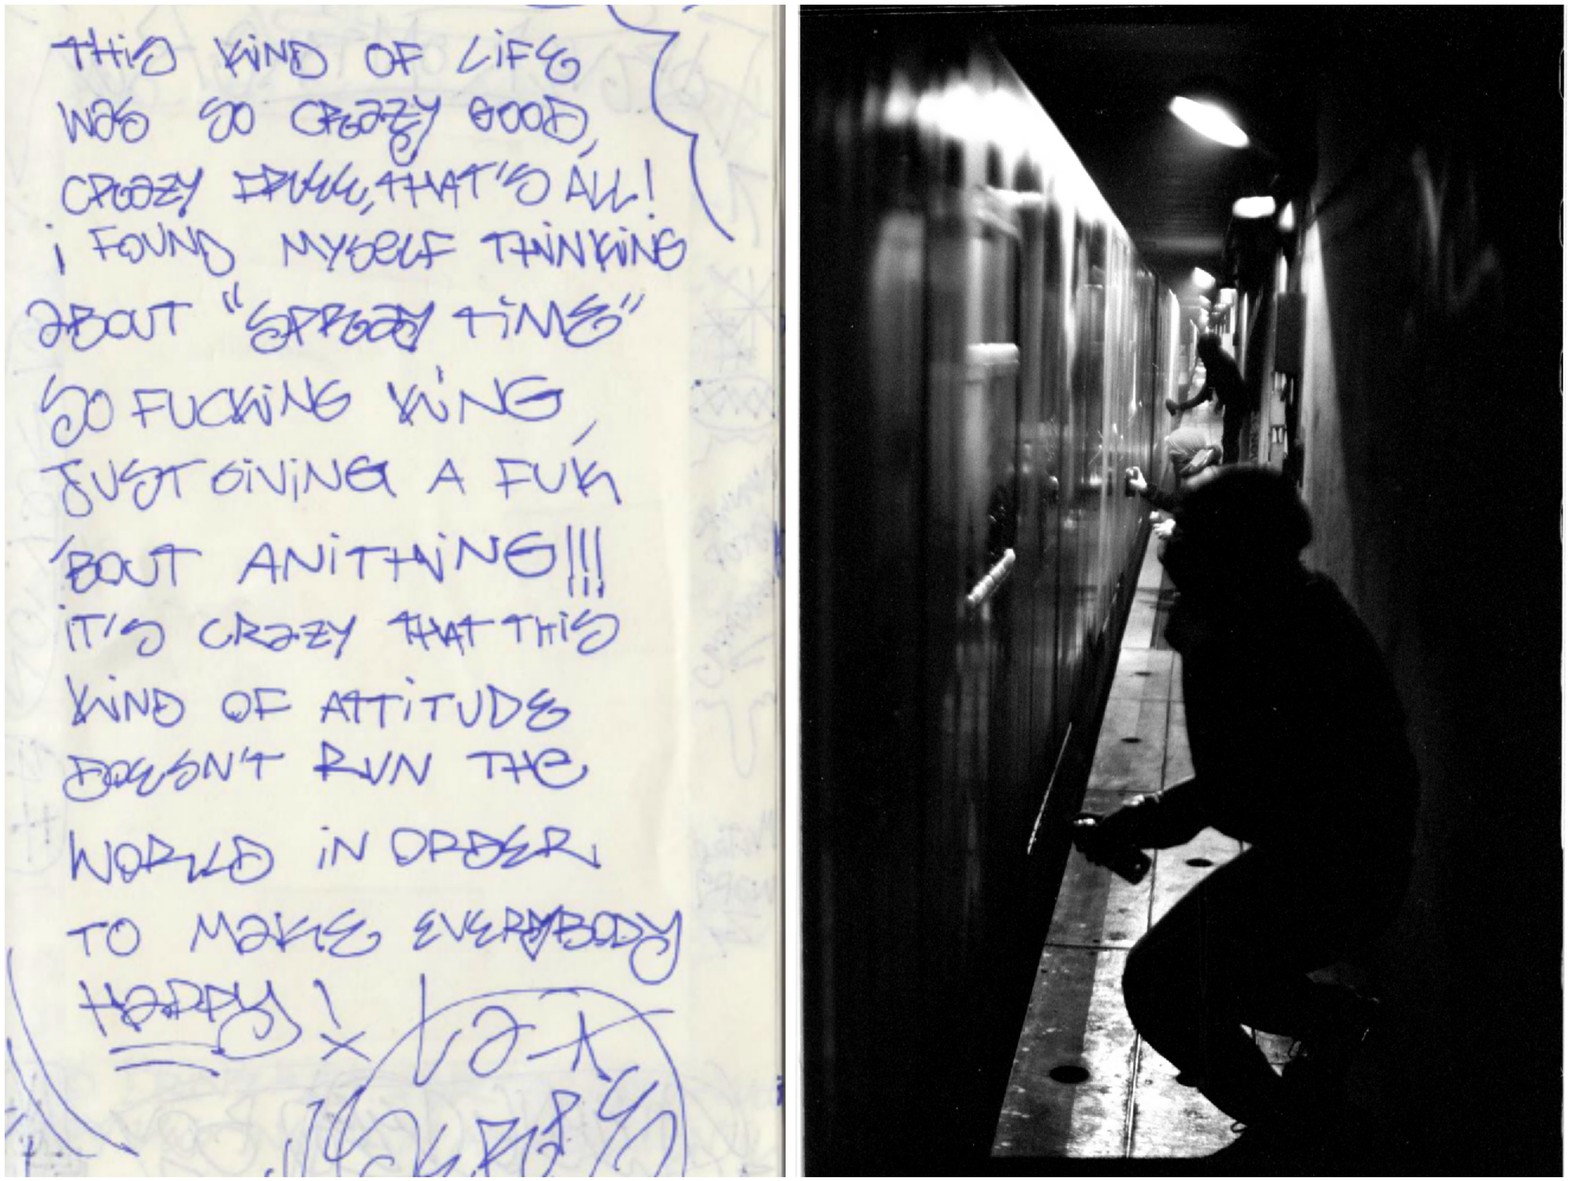 THiS KiND OF LiFE
WaS SO CRaZY GOOD,
CRaZY FREE, THAT'S ALL!
i FOUND MYSELF THiNKiNG
aBOUT "SPRaY TiME"
SO FUCKiNG KiNG,
JUST GiViNG A FUK
'BOUT ANiTHiNG!!!
iT'S CRaZY THAT THiS
KiND OF ATTiTUDE
DOESN'T RUN THe
WORLD iN ORDER
TO MaKE EVERYBODY
HaPPY!